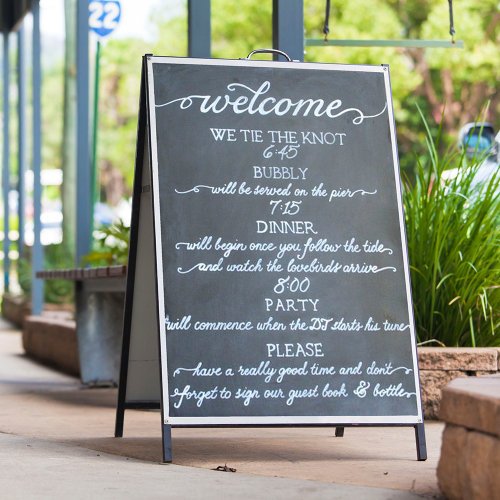 22
welcome
WE TIE THE KNOT
6:45
BUBBLY
will be served on the pier
7:15
DINNER
will begin once you follow the tide
and watch the lovebirds arrive
8:00
PARTY
will commence when the DJ starts his tune
PLEASE
have a really good time and don't
forget to sign our guest book & bottle